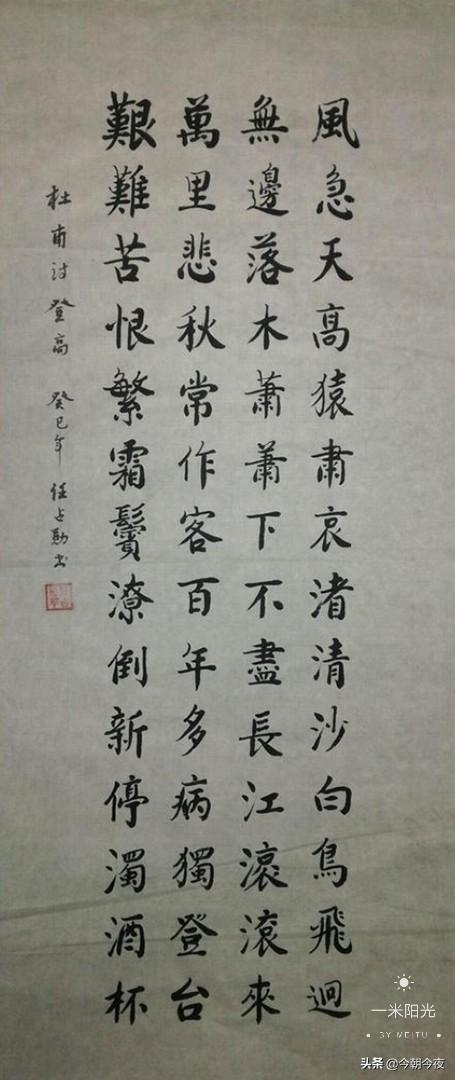 風急天高猿肅哀渚清沙白鳥飛迴
無邊落木蕭蕭下不盡長江滾滾來
萬里悲秋常作客百年多病獨登台
艱難苦恨繁霜鬢潦倒新停濁酒杯
杜甫诗登高 癸巳年 任占勛书
一米阳光
BY MEITU
头条 @今朝今夜